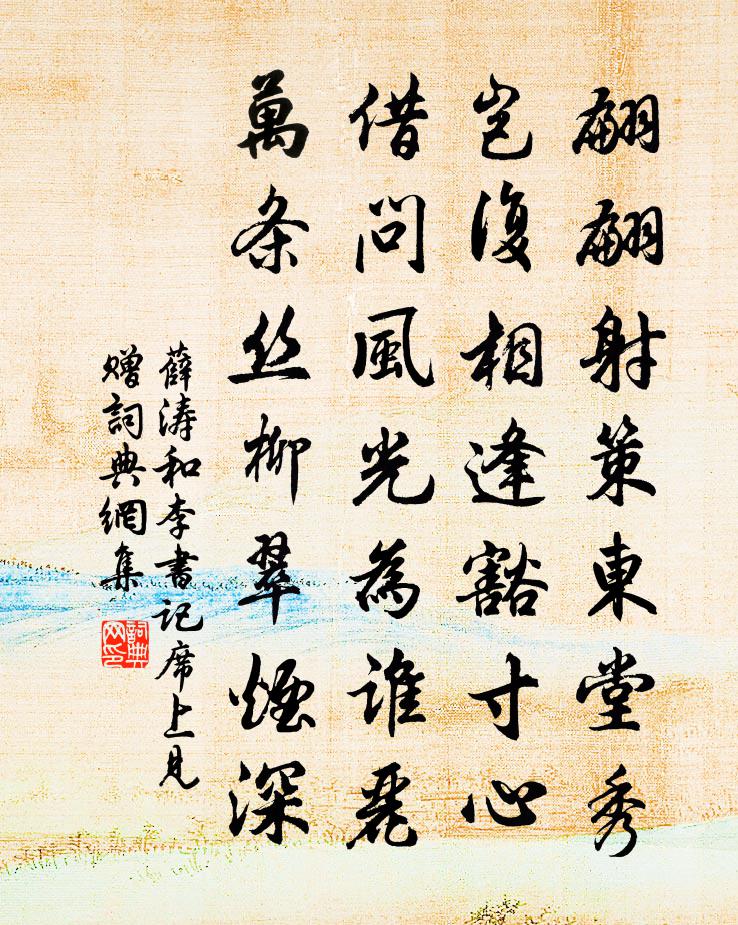 翩翩射策東堂秀
岂復相逢豁寸心
借問風光為誰麗
萬条丝柳翠煙深
薛涛和李書记席上見
贈詞典網集
詞典
网印